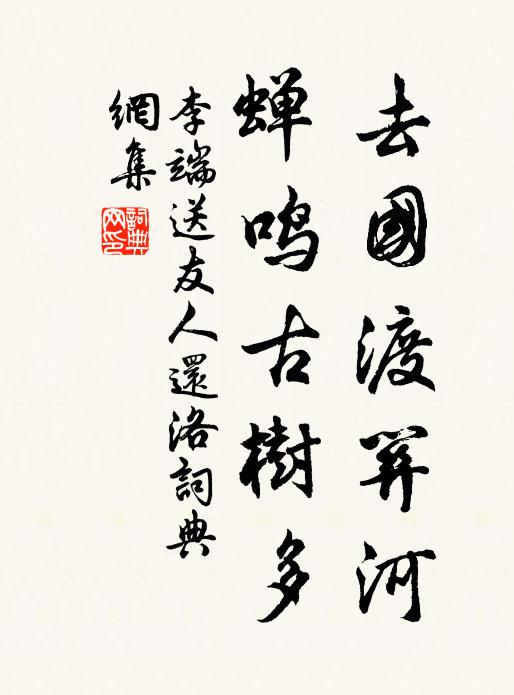 去國渡関河
蝉鸣古樹多
李端送友人還洛詞典
網集
詞典
网印